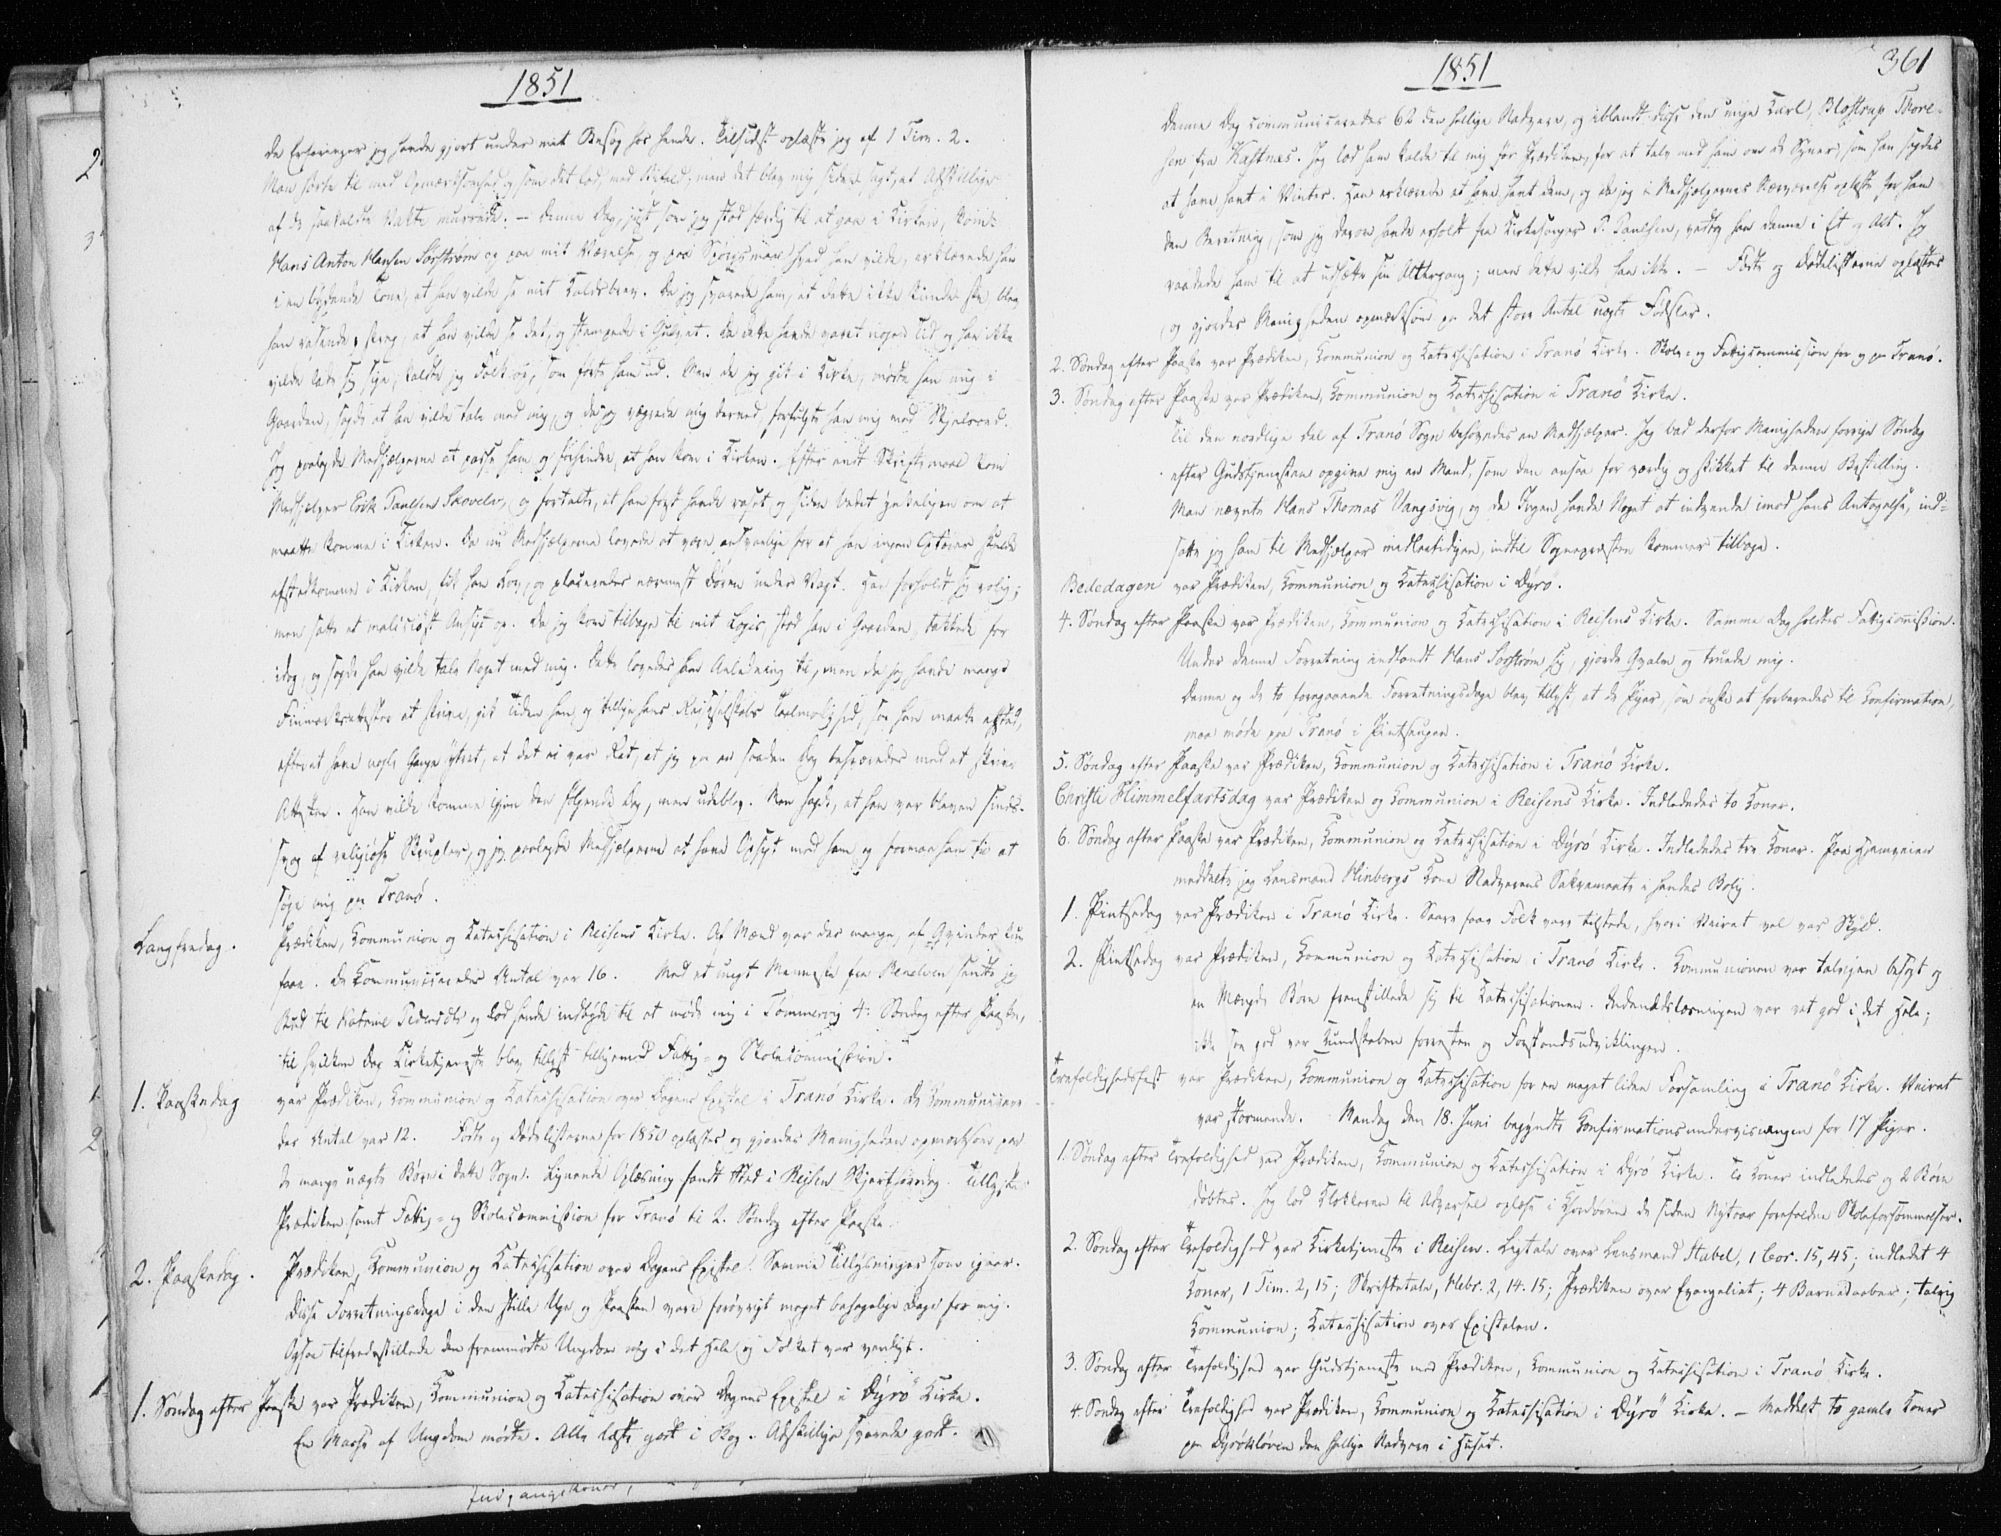 1851
de Erfaringer jeg havde gjort under mit Besøg hos hende. Tilsidst oplæste jeg af 1 Tim. 2.
Man hørte til med Opmærksomhed og som det lod, med Bifald; men det blev mig siden sagt, at Adskillige
af de saakaldte Vakte murrede. – Denne Dag, just som jeg stod færdig til at gaa i Kirken, kom
Hans Anton Hansen Sørstrøm op paa mit Værelse, og paa Spørgsmaal hvad han vilde, erklærede han
i en bydende Tone, at han vilde se mit Kaldsbrev. Da jeg svarede ham, at dette ikke kunde ske, blev
han rasende, skreg, at han vilde se det, og stampede i Gulvet. Da dette havde varet nogen Tid og han ikke
vilde lade sig sige, kaldte jeg Folk op, som førte ham ud. Men da jeg gik i Kirke, mødte han mig i
Gaarden, sagde at han vilde tale med mig, og da jeg vægrede mig derved, forfulgte han mig med Skjelsord.
Jeg paalagde Medhjælperne at passe ham og forhindre, at han kom i Kirken. Efter endt Skriftemaal kom
Medhjelper Erik Paulsen Skovelv, og fortalte, at han først havde raset og siden bedet ydmygeligen om at
maatte komme i Kirken. Da nu Medhjælperne lovede at være ansvarlige for at han ingen Optøier skulde
afstedkomme i Kirken, fik han Lov, og placeredes nærmest Døren under Vagt. Han forholdt sig rolig;
men satte et malisiøst Ansigt op. Da jeg kom tilbage til mit Logis, stod han i Gaarden, takkede for
idag, og sagde han vilde tale Noget med mig. Dette lovedes ham Anledning til, men da jeg havde mange
Finmarksattester at skrive, gik Tiden hen, og tillige hans Reiseselskabs Taalmodighed, saa han maatte afsted,
efterat have nogle Gange ytret, at det ei var Ret, at jeg paa en saadan Dag besværedes med at skrive
Attester. Han vilde komme igjen den følgende Dag, men udeblev. Man sagde, at han var bleven sinds-
svag af religiøse Skrupler, og jeg paalagde Medhjælperne at have Opsyn med ham og formaa ham til at
søge mig paa Tranø.
Langfredag. Prædiken, Kommunion og Katechisation i Reisens Kirke. Af Mænd var der mange, af Qvinder kun
faa. De Kommuniceredes Antal var 16. Med et ungt Menneske fra Renelven sendte jeg
Bud til Katrine Pedersdtr og lod hende indbyde til at møde mig i Tømmervig 4. Søndag efter Paaske,
til hvilken Dag Kirketjeneste blev tillyst tilligemed Fattig- og Skolecommission.
1. Paaskedag var Prædiken, Kommunion og Katechisation over Dagens Epistel i Tranø Kirke. De Kommunicere-
des Antal var 12. Føds- og Dødslisterne for 1850 oplæstes og gjordes Menigheden opmærksom paa
de mange uægte Børn i dette Sogn. Lignende Oplæsning fandt Sted i Reisen Skjærthorsdag. Tillystes
Prædiken samt Fattig- og Skolecommission for Tranø til 2. Søndag efter Paaske.
2. Paaskedag. Prædiken, Kommunion og Katechisation over Dagens Epistel. Samme Tillysninger som igaar.
Disse Forretningsdage i den stille Uge og Paasken vare forøvrigt meget behagelige Dage for mig.
Ogsaa tilfredsstillede den fremmødte Ungdom mig i det Hele og Folket var venligt.
1. Søndag efter Paaske var Prædiken, Kommunion og Katechisation over Dagens Epistel i Dyrø Kirke.
En Masse af Ungdom mødte. Alle læste godt i Bog. Adskillige svarede godt.
1851
361
Denne Dag communiceredes 62 den hellige Nadvere, og iblandt disse den unge Karl, Blostrup Thore-
sen fra Kastnæs. Jeg lod ham kalde til mig før Prædiken, for at tale med ham om de Syner, som han sagdes
at have havt i Vinter. Han erklærede at have havt dem, og da jeg i Medhjælpernes Nærværelse oplæste for ham
den Beretning, som jeg derom havde erholdt fra Kirkesanger P. Paulsen, vedtog han denne i Et og Alt. Jeg
raadede ham til at udsætte sin Altergang; men dette vilde han ikke. – Føds- og Dødslisterne oplæstes
og gjordes Menigheden opmærksom paa det store Antal uægte Fødsler.
2. Søndag efter Paaske var Prædiken, Kommunion og Katechisation i Tranø Kirke. Skole- og Fattigcommission for og paa Tranø.
3. Søndag efter Paaske var Prædiken, Kommunion og Katechisation i Tranø Kirke.
Til den nordlige Del af Tranø Sogn behøvedes en Medhjælper. Jeg bad derfor Menigheden forrige Søndag
efter Gudstjenesten opgive mig en Mand, som den ansaa for værdig og skikket til denne Bestilling.
Man nævnte Hans Thomas Vangsvig, og da Ingen havde Noget at indvende imod hans Antagelse, ind-
satte jeg ham til Medhjælper midlertidigen, indtil Sognepresten kommer tilbage.
Bededagen var Prædiken, Kommunion og Katechisation i Dyrø.
4. Søndag efter Paaske var Prædiken, Kommunion og Katechisation i Reisens Kirke. Samme Dag holdtes Fattigcomission.
Under denne Forretning indfandt Hans Sørstrøm sig, gjorde Qvalm og truede mig.
Denne og de to foregaaende Forretningsdage blev tillyst, at de Piger, som ønske at forberedes til Konfirmation,
maa møde paa Tranø i Pintseugen.
5. Søndag efter Paaske var Prædiken, Kommunion og Katechisation i Tranø Kirke.
Christi Himmelfartsdag var Prædiken og Kommunion i Reisens Kirke. Indledtes to Koner.
6. Søndag efter Paaske var Prædiken, Kommunion og Katechisation i Dyrø Kirke. Indledtes tre Koner. Paa Hjemveien
meddelte jeg Lensmand Hinbergs Kone Nadverens Sakramente i hendes Bolig.
1. Pintsedag var Prædiken i Tranø Kirke. Saare faae Folk vare tilstede, hvori Veiret vel var Skyld.
2. Pintsedag var Prædiken, Kommunion og Katechisation i Tranø Kirke. Kommunionen var talrigen besøgt og
en Mængde Børn fremstillede sig til Katechisationen. Indenadslæsningen var ret god i det Hele;
ikke saa god var Kundskaben forresten og Forstandsudviklingen.
Trefoldighedsfest var Prædiken, Kommunion og Katechisation for en meget liden Forsamling i Tranø Kirke. Veiret
var stormende. Mandag den 18. Juni begyndte Konfirmationsundervisningen for 17 Piger.
1. Søndag efter Trefoldighed var Prædiken, Kommunion og Katechisation i Dyrø Kirke. To Koner indledtes og 2 Børn
døbtes. Jeg lod Klokkeren til Advarsel oplæse i Chordøren de siden Nytaar forefaldne Skoleforsømmelser.
2. Søndag efter Trefoldighed var Kirketjeneste i Reisen. Ligtale over Lensmand Stabel, 1 Cor. 15,45; indledet 4
Koner, 1 Tim. 2,15; Skriftetale, Hebr. 2,14.15; Prædiken over Evangeliet; 4 Barnedaaber; talrig
Kommunion; Katechisation over Epistelen.
3. Søndag efter Trefoldighed var Gudstjeneste med Prædiken, Kommunion og Katechisation i Tranø Kirke.
4. Søndag efter Trefoldighed var Prædiken, Kommunion og Katechisation i Dyrø Kirke. – Meddelt to gamle Koner
paa Dyrøkløven den hellige Nadvere i Huset.